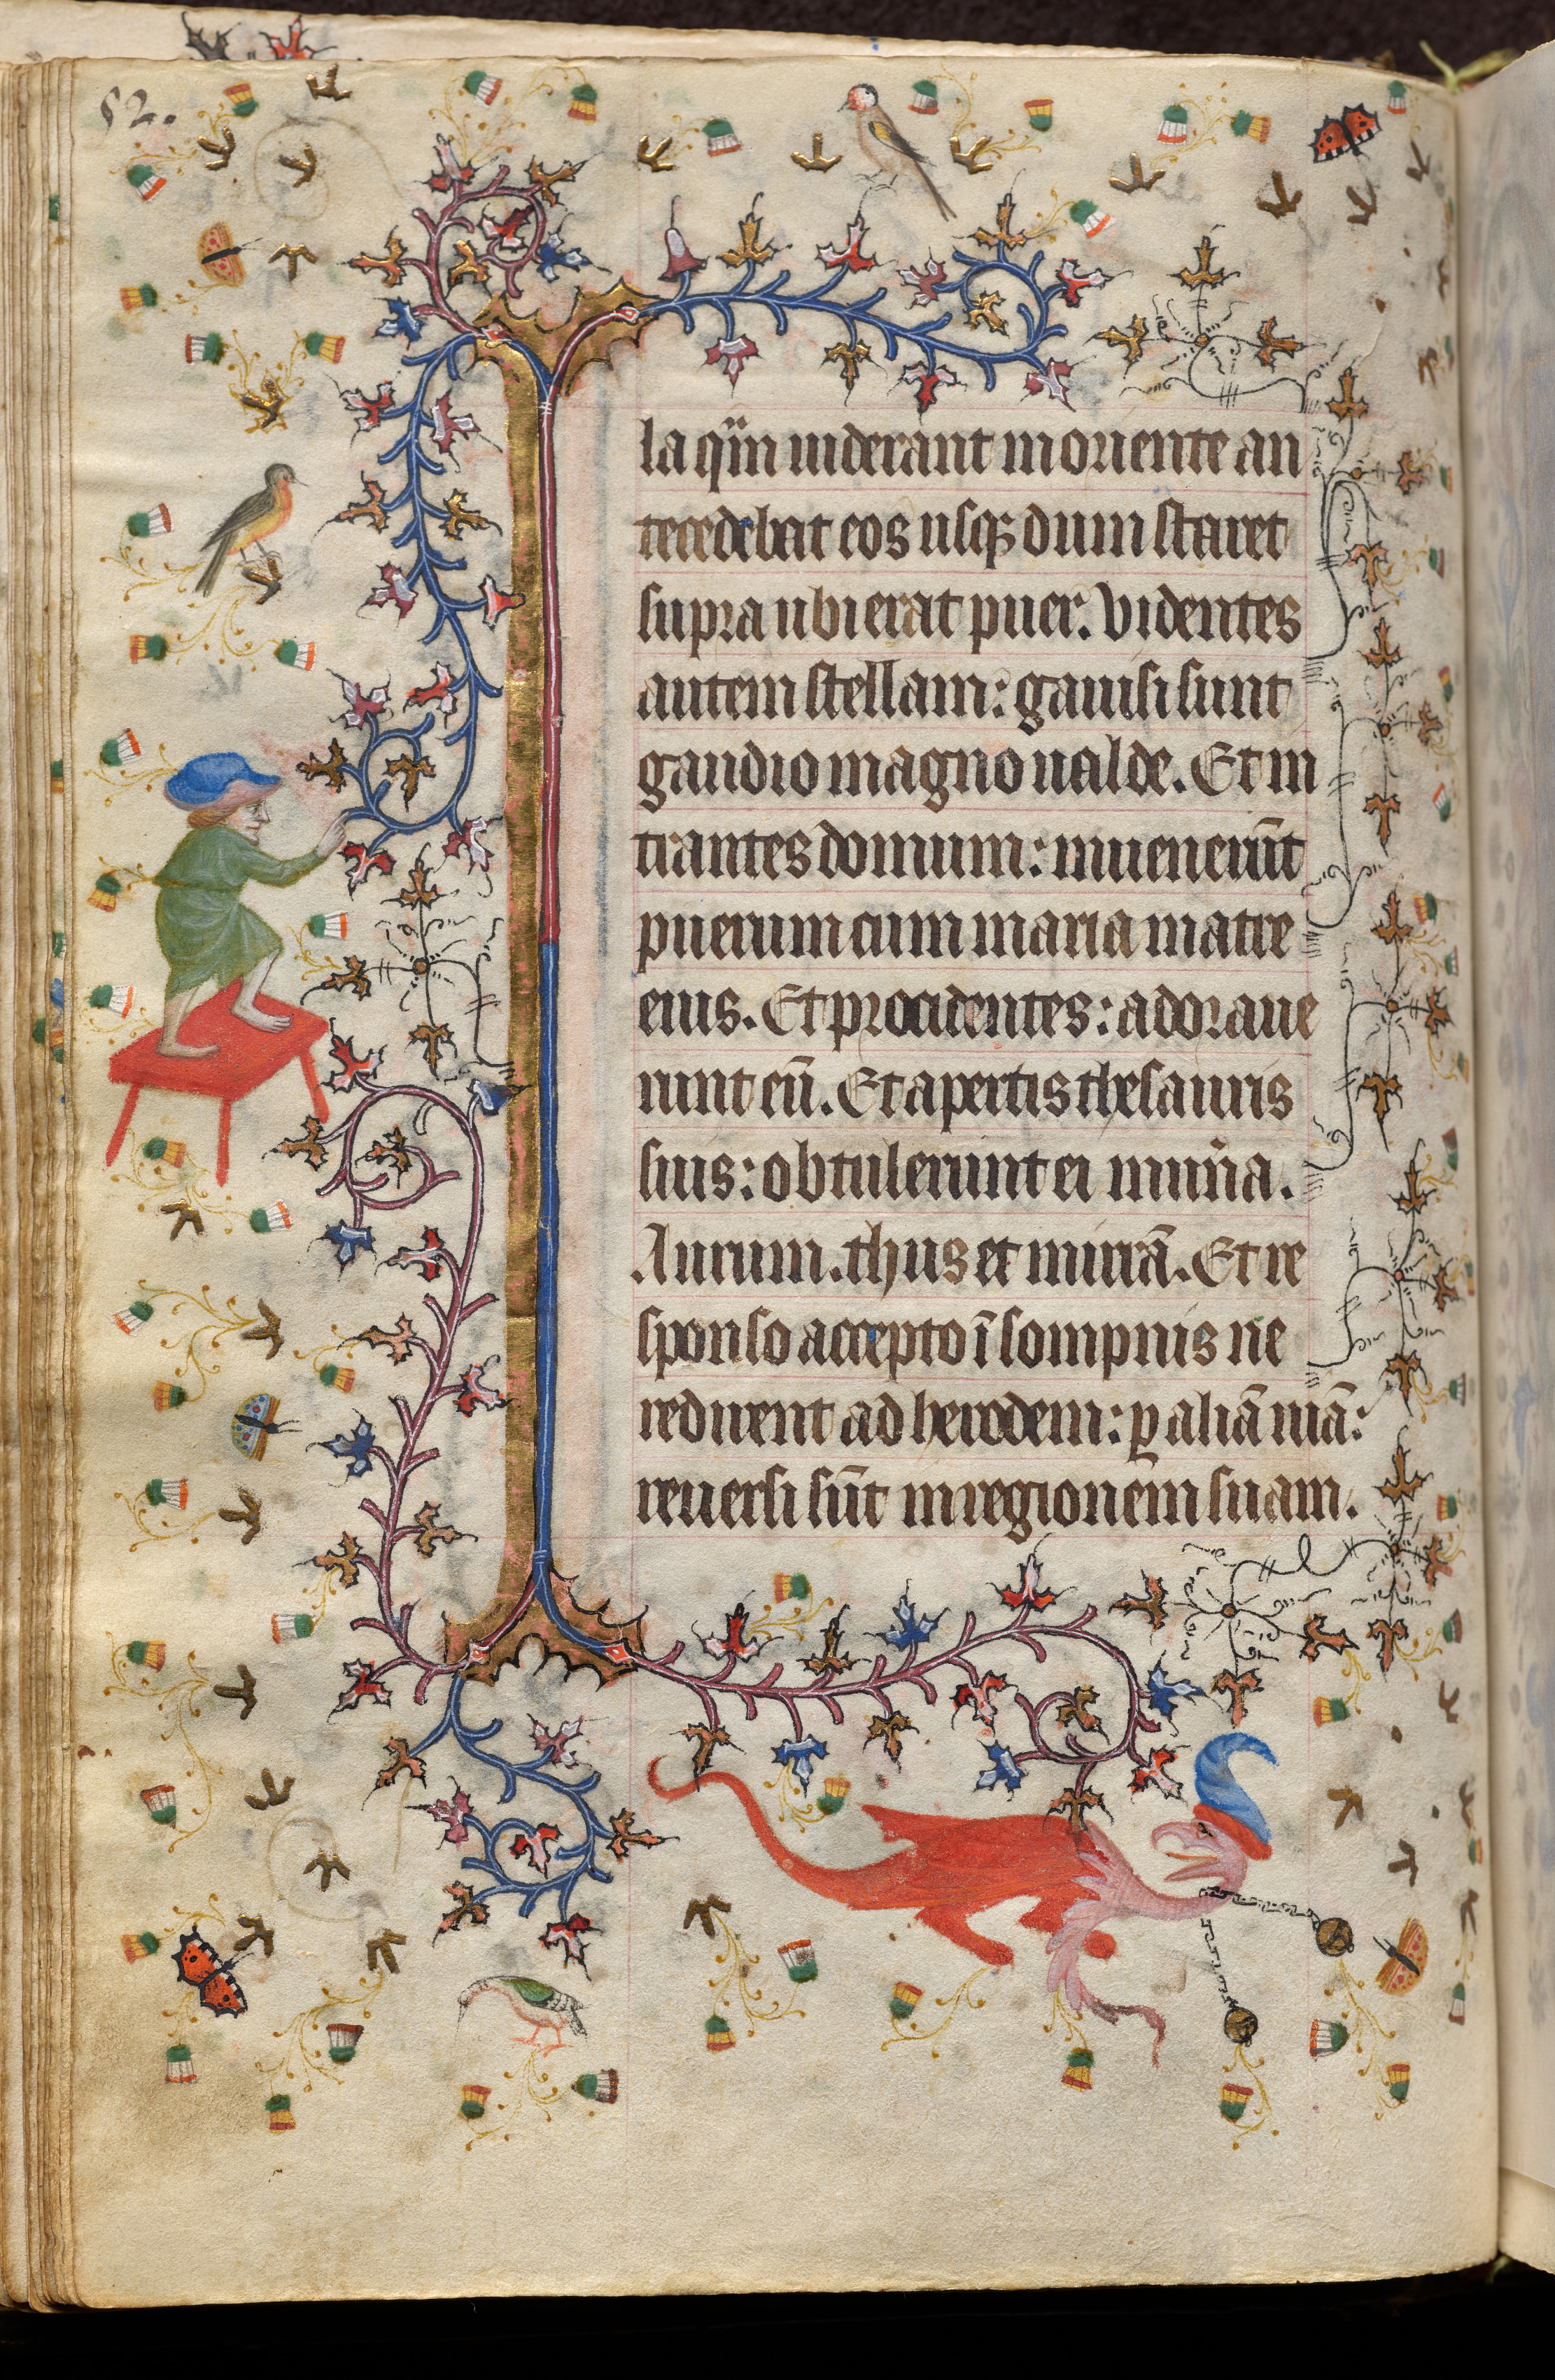 52.
la q̄m uiderant in oriente an
tecedebat eos usq; dum staret
supra ubi erat puer. Videntes
autem stellam: gauisi sunt
gaudio magno ualde. Et in
trantes domum: inuenerūt
puerum cum maria matre
eius. Et procidentes: adoraue
runt eū. Et apertis thesauris
suis: obtulerunt ei mun̄a.
Aurum. thus et mirrā. Et re
sponso accepto ī sompnis ne
redirent ad herodem: ꝑ aliā uiā:
reuersi sūt in regionem suam.